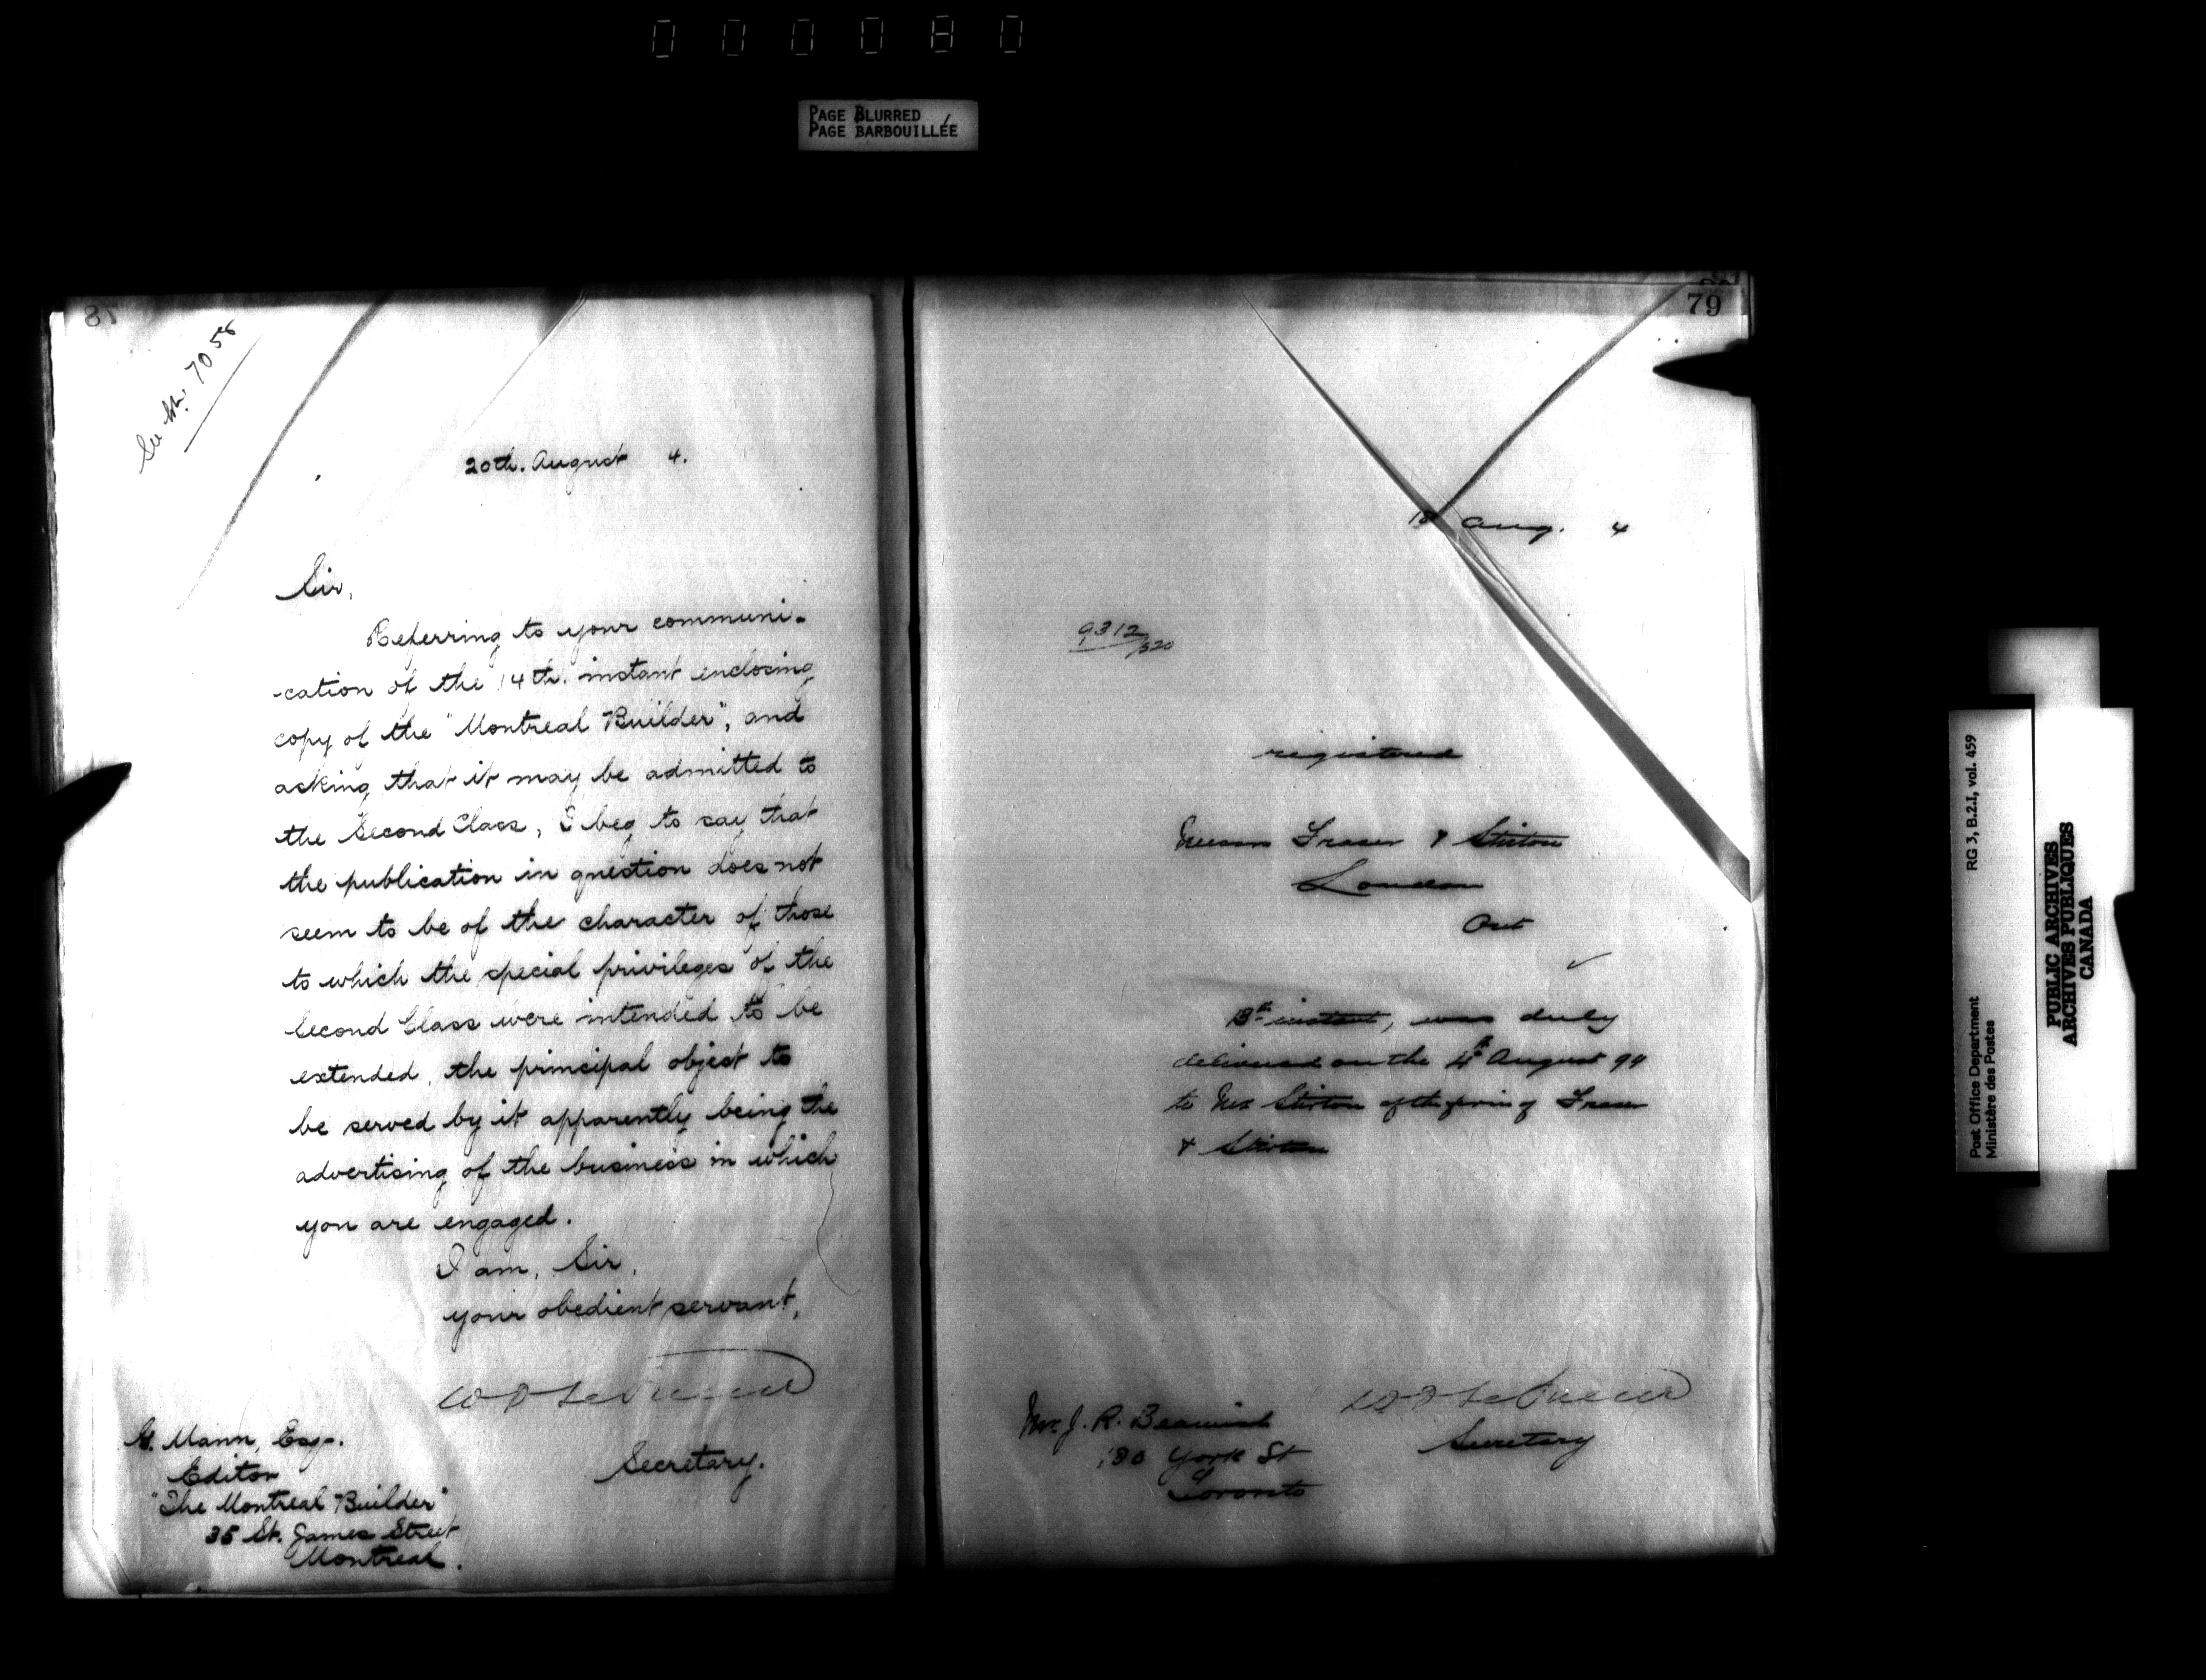 000080
PAGE BLURRED
PAGE BARBOUILLÉE
7058
20th. August 4.
Sir,
Referring to your communi-
-cation of the 14th. instant enclosing
copy of the "Montreal Builder", and
asking that it may be admitted to
the Second Class, I beg to say that
the publication in question does not
seem to be of the character of those
to which the special privileges of the
Second Class were intended to be
extended, the principal object to
be served by it apparently being the
advertising of the business in which
you are engaged.
I am, Sir,
your obedient servant,
Secretary.
G. Mann, Esq.
Editor
"The Montreal Builder"
35 St. James Street
Montreal.
79
18 Aug. 4
9312/520
registered
Messrs Fraser & Stirton
London
Ont
13th instant, was duly
delivered on the 4th August 94
to Mr Stirton of the firm of Fraser
& Stirton
Secretary
Mr. J. R. Beamish
180 York St
Toronto
Post Office Department
Ministère des Postes
RG 3, B.2.I, vol. 459
PUBLIC ARCHIVES
ARCHIVES PUBLIQUES
CANADA